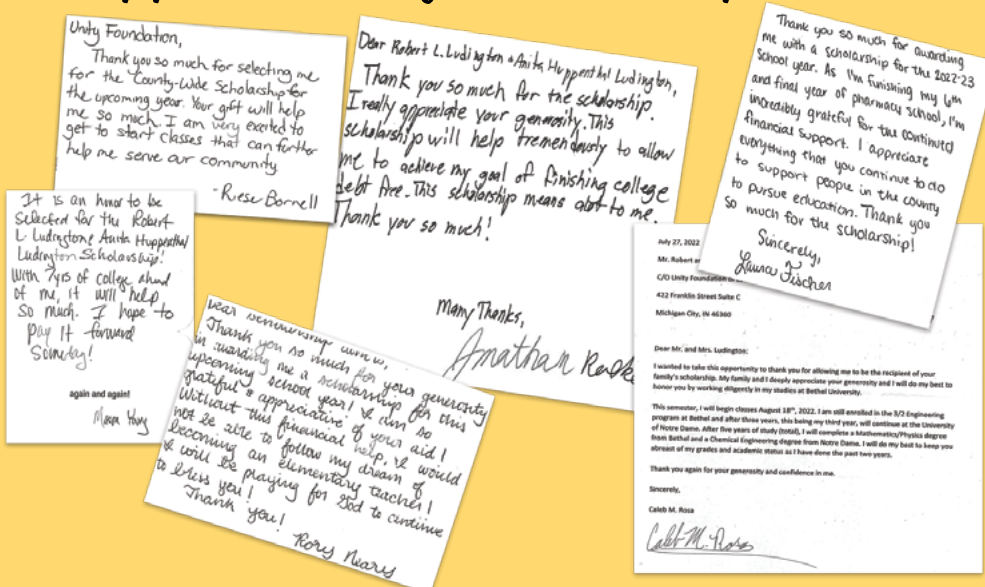 Unity Foundation,
Thank you so much for selecting me
for the County-Wide Scholarship for
the upcoming year. Your gift will help
me so much. I am very excited to
get to start classes that can further
help me serve our community.
-Riese Bornell
Dear Robert L. Ludington & Anita Huppenthal Ludington,
Thank you so much for the scholarship.
I really appreciate your generosity. This
scholarship will help tremendously to allow
me to achieve my goal of finishing college
debt free. This scholarship means alot to me.
Thank you so much!
Many Thanks,
Anathan
Thank you so much for awarding
me with a scholarship for the 2022-23
School year. As I'm finishing my 6th
and final year of pharmacy school, I'm
incredibly grateful for the continued
financial support. I appreciate
everything that you continue to do
to support people in the county
to pursue education. Thank you
so much for the scholarship!
Sincerely,
Laura Fischer
It is an honor to be
selected for the Robert
L. Ludington & Anita Huppenthal
Ludington Scholarship!
With 7yrs of college ahead
of me, it will help
so much. I hope to
pay it forward
Someday!
again and again!
Young
Thank you so much for your generosity
in awarding me a scholarship for this
upcoming school year! I am so
grateful & appreciative of your aid!
Without this financial help, I would
not be able to follow my dream of
becoming an elementary teacher!
I will be praying for God to continue
to bless you!
Thank you!
Rory Neary
July 27, 2022
Mr. Robert
C/O Unity Foundation
422 Franklin Street Suite C
Michigan City, IN 46360
Dear Mr. and Mrs. Ludington:
I wanted to take this opportunity to thank you for allowing me to be the recipient of your
family's scholarship. My family and I deeply appreciate your generosity and I will do my best to
honor you by working diligently in my studies at Bethel University.
This semester, I will begin classes August 18th, 2022. I am still enrolled in the 3/2 Engineering
program at Bethel and after three years, this being my third year, will continue at the University
of Notre Dame. After five years of study (total), I will complete a Mathematics/Physics degree
from Bethel and a Chemical Engineering degree from Notre Dame. I will do my best to keep you
abreast of my grades and academic status as I have done the past two years.
Thank you again for your generosity and confidence in me.
Sincerely,
Caleb M. Rosa
Caleb M. Rosa